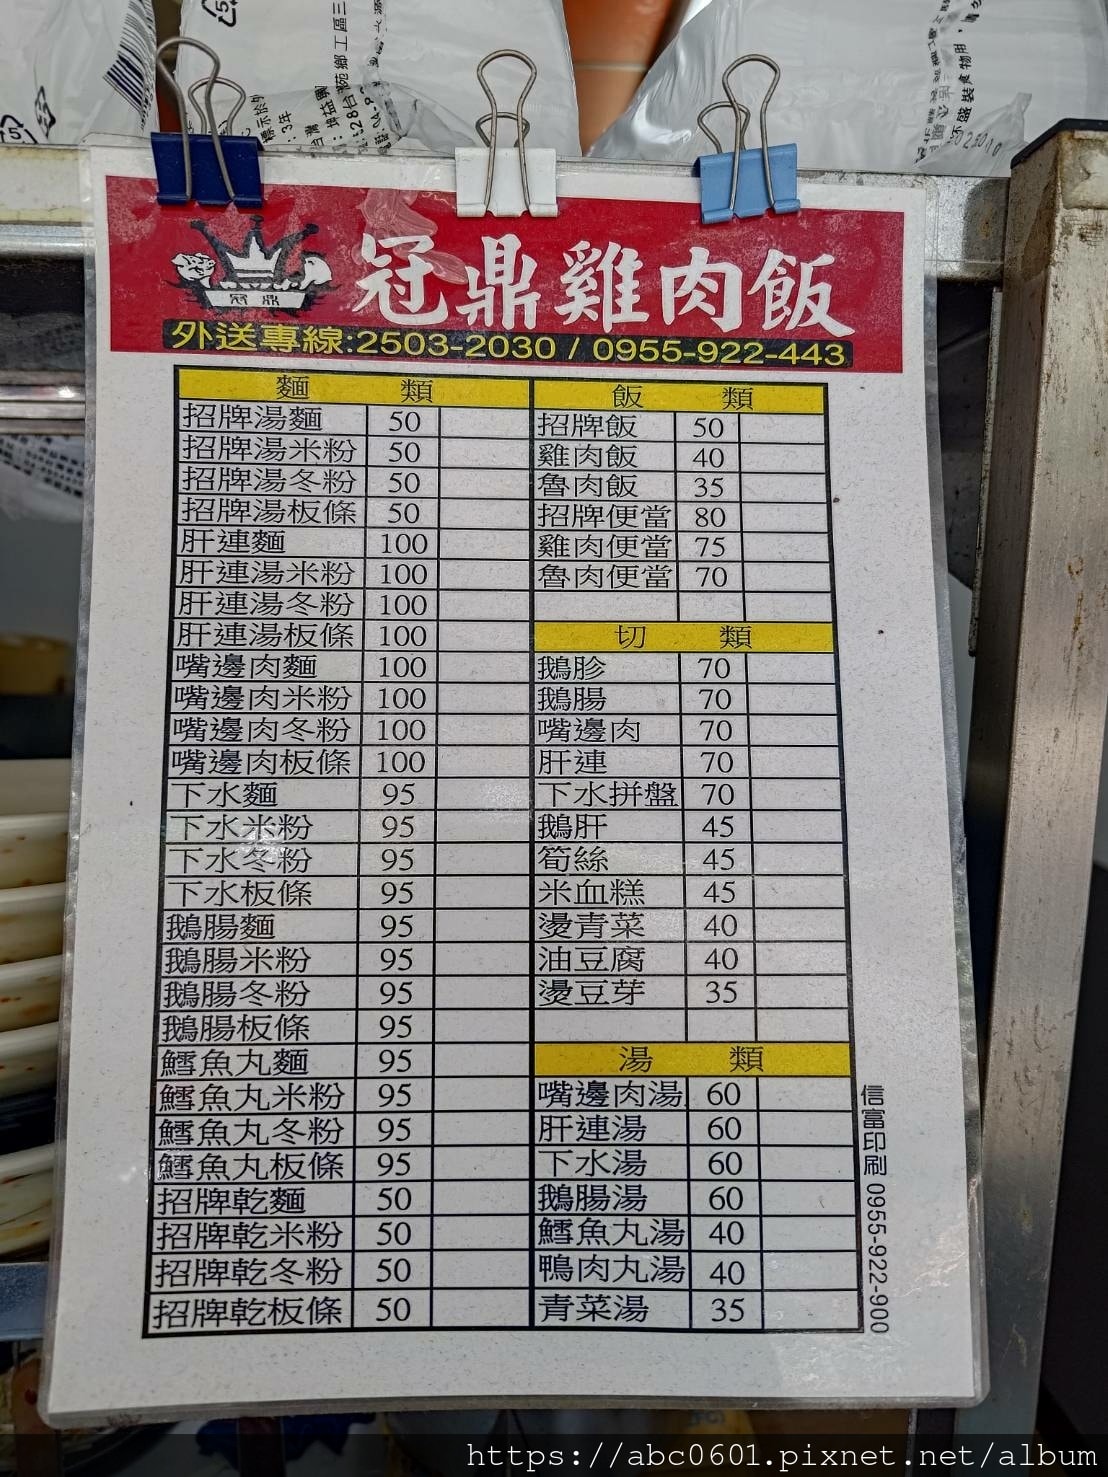 冠鼎雞肉飯
冠鼎
外送專線:2503-2030 / 0955-922-443
麵 類
招牌湯麵 50
招牌湯米粉 50
招牌湯冬粉 50
招牌湯板條 50
肝連麵 100
肝連湯米粉 100
肝連湯冬粉 100
肝連湯板條 100
嘴邊肉麵 100
嘴邊肉米粉 100
嘴邊肉冬粉 100
嘴邊肉板條 100
下水麵 95
下水米粉 95
下水冬粉 95
下水板條 95
鵝腸麵 95
鵝腸米粉 95
鵝腸冬粉 95
鵝腸板條 95
鱈魚丸麵 95
鱈魚丸米粉 95
鱈魚丸冬粉 95
鱈魚丸板條 95
招牌乾麵 50
招牌乾米粉 50
招牌乾冬粉 50
招牌乾板條 50
飯 類
招牌飯 50
雞肉飯 40
魯肉飯 35
招牌便當 80
雞肉便當 75
魯肉便當 70
切 類
鵝胗 70
鵝腸 70
嘴邊肉 70
肝連 70
下水拼盤 70
鵝肝 45
筍絲 45
米血糕 45
燙青菜 40
油豆腐 40
燙豆芽 35
湯 類
嘴邊肉湯 60
肝連湯 60
下水湯 60
鵝腸湯 60
鱈魚丸湯 40
鴨肉丸湯 40
青菜湯 35
信富印刷 0955-922-900
https://abc0601.pixnet.net/album